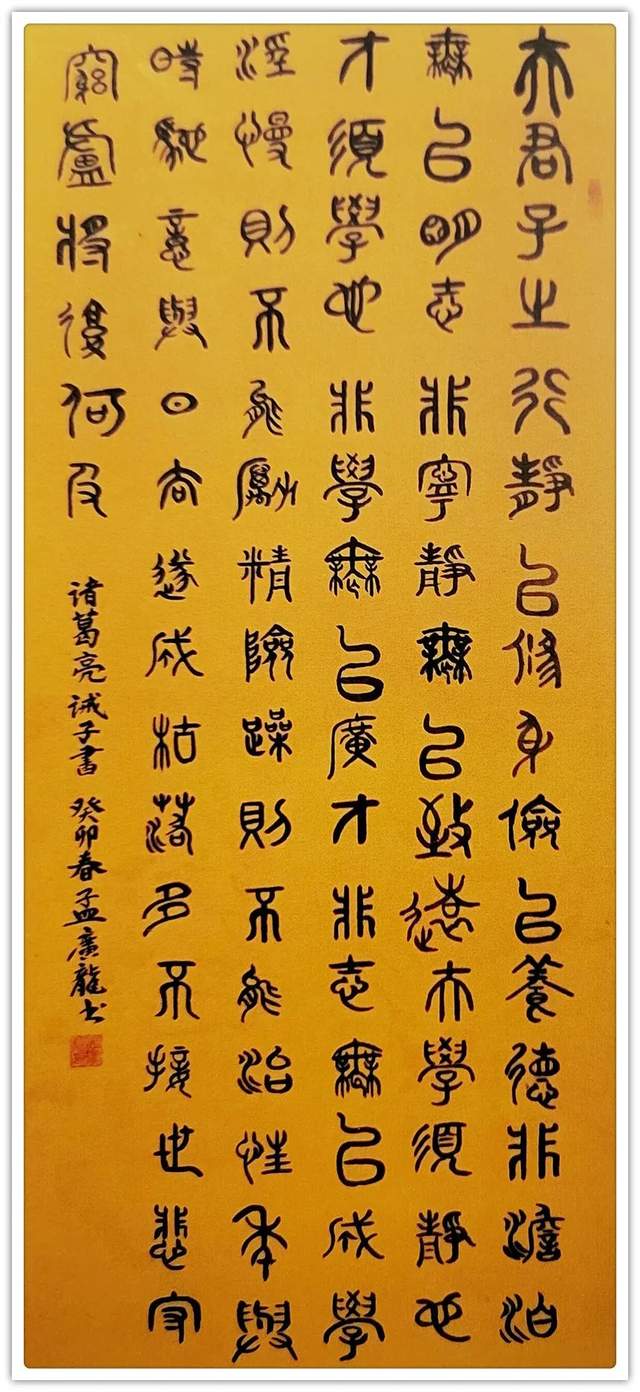 夫君子之行靜以修身儉以養德非澹泊
無以明志非寧靜無以致遠夫學須靜也
才須學也非學無以廣才非志無以成學
淫慢則不能勵精險躁則不能治性年與
時馳意與日去遂成枯落多不接世悲守
窮廬將復何及
诸葛亮诫子書 癸卯春孟廣龍书